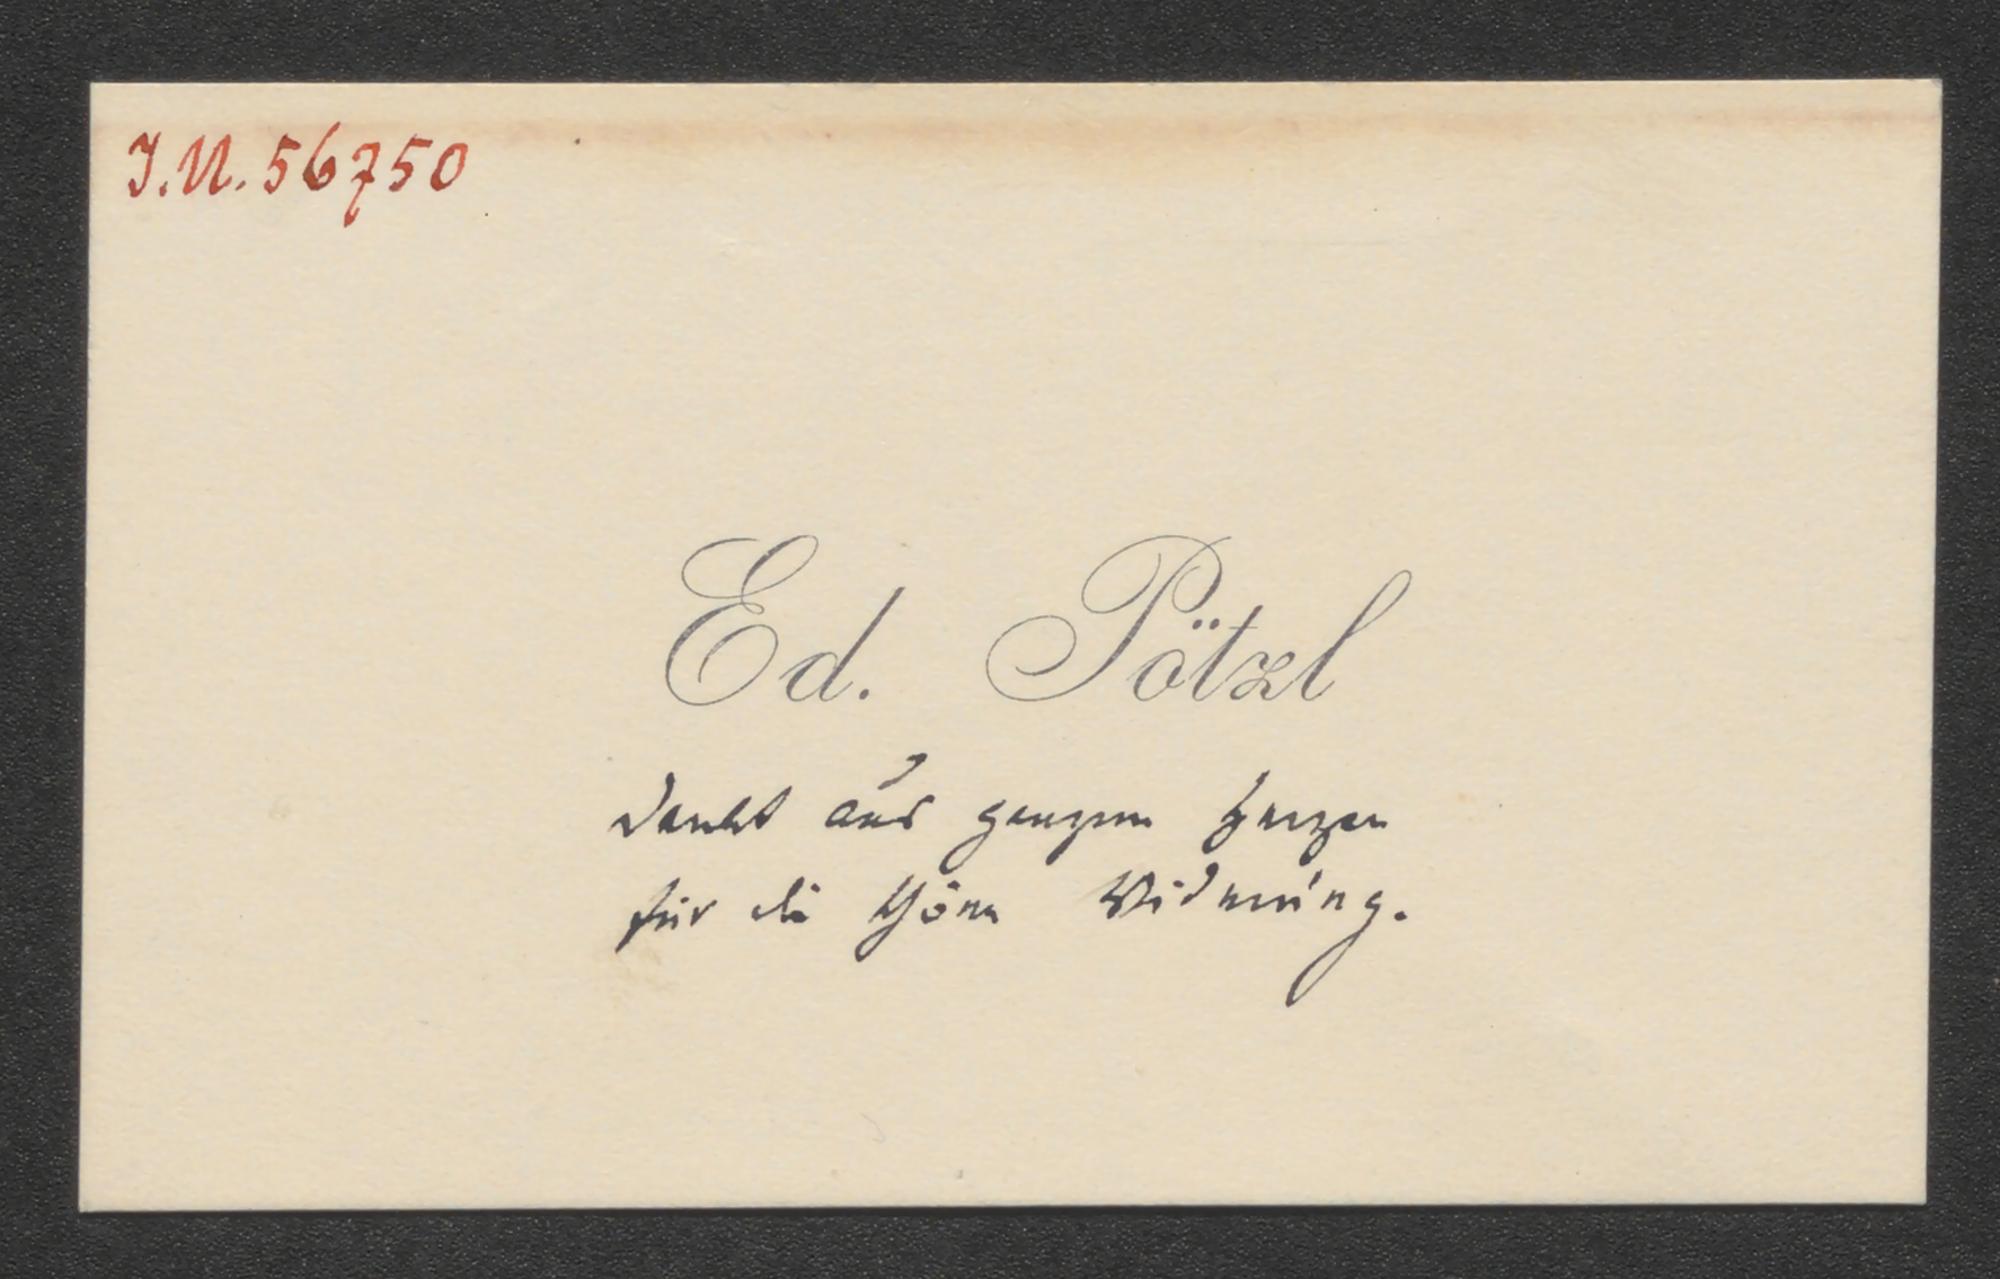 J.N. 56750
Ed. Pötzl
dankt aus ganzem Herzen
für die schöne Widmung.